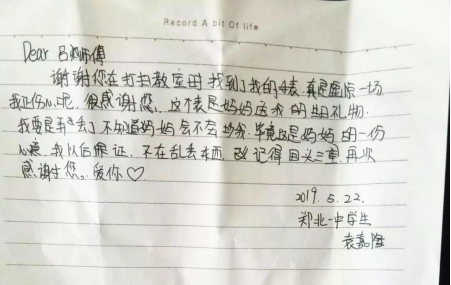 Record A bit Of life
Dear 吕师傅
谢谢您在打扫教室时找到了我的手表.真是虚惊一场
我正伤心呢,很感谢您、这个表是妈妈送我的生日礼物.
我要是弄丢了不知道妈妈会不会 我.毕竟这是妈妈的一份
心意.我以后保证.不在乱丢东西. 记得 再次
感谢您。爱你♡
2019.5.22.
郑北一中学生
袁嘉